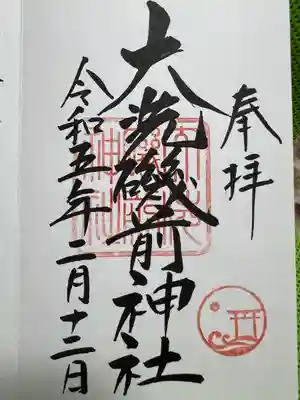 奉拝
大洗磯前神社
令和五年二月十二日